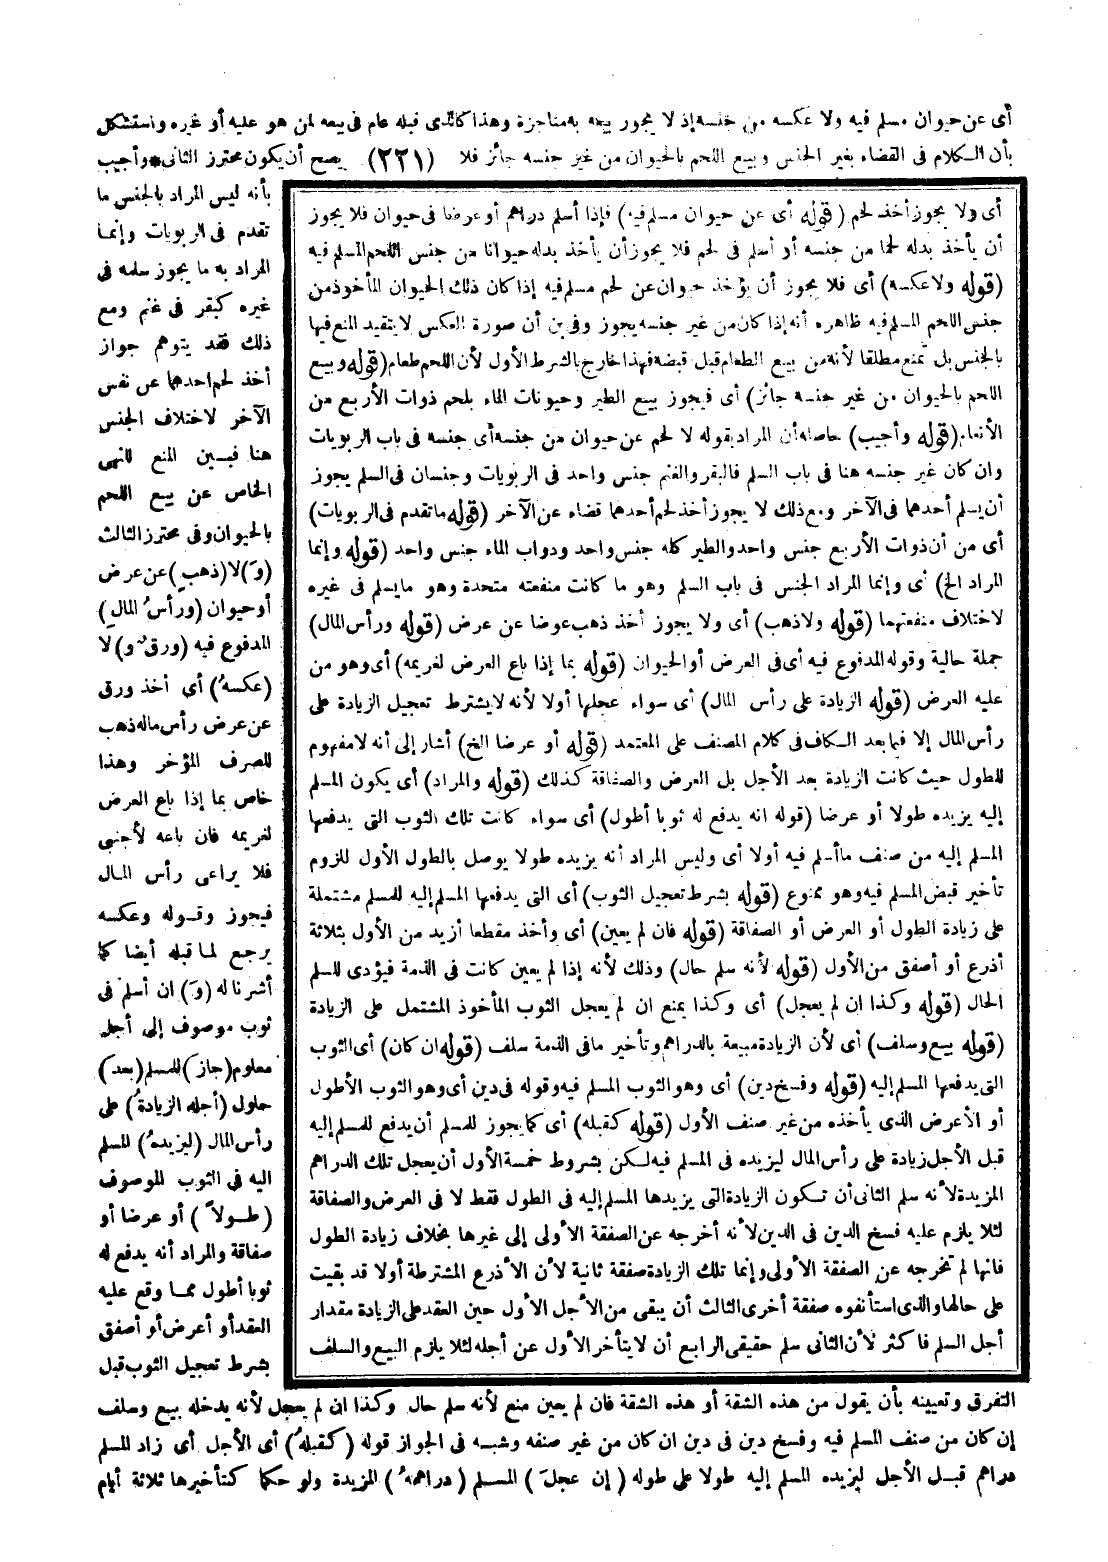 أى عن حيوان مسلم فيه ولا عكسه من جنسه إذ لا يجوز بيعه به مناجزة وهذا كالذى قبله عام فى بيعه لمن هو عليه أو غيره واستشكل
بأن الكلام فى القضاء بغير الجنس وبيع اللحم بالحيوان من غير جنسه جائز فلا (٢٢١) يصح أن يكون محترز الثانى * وأجيب
بأنه ليس المراد بالجنس ما
تقدم فى الربويات وإنما
المراد به ما يجوز سلمه فى
غيره كبقر فى غنم ومع
ذلك فقد يتوهم جواز
أخذ لحم احدهما عن نفس
الآخر لاختلاف الجنس
هنا فبين المنع للنهى
الخاص عن بيع اللحم
بالحيوان وفى محترز الثالث
(وَ) لا (ذهبٍ) عن عرض
أو حيوان (ورأسُ المالِ)
المدفوع فيه (ورق و) لا
(عكسهُ) أى أخذ ورق
عن عرض رأس ماله ذهب
للصرف المؤخر وهذا
خاص بما إذا باع العرض
لغريمه فان باعه لأجنبى
فلا يراعى رأس المال
فيجوز وقوله وعكسه
يرجع لما قبله أيضا كما
أشرنا له (وَ) ان أسلم فى
ثوب موصوف إلى أجل
معلوم (جاز) للمسلم (بعد)
حلول (أجله الزيادةُ) على
رأس المال (ليزيدهُ) المسلم
اليه فى الثوب الموصوف
(طولاً) أو عرضا أو
صفاقة والمراد أنه يدفع له
ثوبا أطول مما وقع عليه
العقد أو أعرض أو أصفق
بشرط تعجيل الثوب قبل
أى ولا يجوز أخذ لحم (قوله أى عن حيوان مسلم فيه) فإذا أسلم دراهم أو عرضا فى حيوان فلا يجوز
أن يأخذ بدله لحما من جنسه أو أسلم فى لحم فلا يجوز أن يأخذ بدله حيوانا من جنس اللحم المسلم فيه
(قوله ولا عكسه) أى فلا يجوز أن يؤخذ حيوان عن لحم مسلم فيه إذا كان ذلك الحيوان المأخوذ من
جنس اللحم المسلم فيه ظاهره أنه إذا كان من غير جنسه يجوز وفى بن أن صورة العكس لا يتقيد المنع فيها
بالجنس بل تمنع مطلقا لأنه من بيع الطعام قبل قبضه فهذا خارج بالشرط الأول لأن اللحم طعام (قوله وبيع
اللحم بالحيوان من غير جنسه جائز) أى فيجوز بيع الطير وحيونات الماء بلحم ذوات الأربع من
الأنعام (قوله وأجيب) حاصله أن المراد بقوله لا لحم عن حيوان من جنسه أى جنسه فى باب الربويات
وان كان غير جنسه هنا فى باب السلم فالبقر والغنم جنس واحد فى الربويات وجنسان فى السلم يجوز
أن يسلم أحدهما فى الآخر ومع ذلك لا يجوز أخذ لحم أحدهما قضاء عن الآخر (قوله ما تقدم فى الربويات)
أى من أن ذوات الأربع جنس واحد والطير كله جنس واحد ودواب الماء جنس واحد (قوله وإنما
المراد الخ) أى وإنما المراد الجنس فى باب السلم وهو ما كانت منفعته متحدة وهو ما يسلم فى غيره
لاختلاف منفعتهما (قوله ولا ذهب) أى ولا يجوز أخذ ذهب عوضا عن عرض (قوله ورأس المال)
جملة حالية وقوله المدفوع فيه أى فى العرض أو الحيوان (قوله بما إذا باع العرض لغريمه) أى وهو من
عليه العرض (قوله الزيادة على رأس المال) أى سواء عجلها أولا لأنه لا يشترط تعجيل الزيادة على
رأس المال إلا فيما بعد الكاف فى كلام المصنف على المعتمد (قوله أو عرضا الخ) أشار إلى أنه لا مفهوم
للطول حيث كانت الزيادة بعد الأجل بل العرض والصفاقة كذلك (قوله والمراد) أى يكون المسلم
إليه يزيده طولا أو عرضا (قوله انه يدفع له ثوبا أطول) أى سواء كانت تلك الثوب التى يدفعها
المسلم إليه من صنف ما أسلم فيه أولا أى وليس المراد أنه يزيده طولا يوصل بالطول الأول للزوم
تأخير قبض المسلم فيه وهو ممنوع (قوله بشرط تعجيل الثوب) أى التى يدفعها المسلم إليه للمسلم مشتملة
على زيادة الطول أو العرض أو الصفاقة (قوله فان لم يعين) أى وأخذ مقطعا أزيد من الأول بثلاثة
أذرع أو أصفق من الأول (قوله لأنه سلم حال) وذلك لأنه إذا لم يعين كانت فى الذمة فيؤدى للسلم
الحال (قوله وكذا ان لم يعجل) أى وكذا يمنع ان لم يعجل الثوب المأخوذ المشتمل على الزيادة
(قوله بيع وسلف) أى لأن الزيادة مبيعة بالدراهم وتأخير ما فى الذمة سلف (قوله ان كان) أى الثوب
التى يدفعها المسلم إليه (قوله وفسخ دين) أى وهو الثوب المسلم فيه وقوله فى دين أى وهو الثوب الأطول
أو الأعرض الذى يأخذه من غير صنف الأول (قوله كقبله) أى كما يجوز للمسلم أن يدفع للمسلم إليه
قبل الأجل زيادة على رأس المال ليزيده فى المسلم فيه لكن بشروط خمسة الأول أن يعجل تلك الدراهم
المزيدة لأنه سلم الثانى أن تكون الزيادة التى يزيدها المسلم إليه فى الطول فقط لا فى العرض والصفاقة
لئلا يلزم عليه فسخ الدين فى الدين لأنه أخرجه عن الصفقة الأولى إلى غيرها بخلاف زيادة الطول
فانها لم تخرجه عن الصفقة الأولى وإنما تلك الزيادة صفقة ثانية لأن الأذرع المشترطة أولا قد بقيت
على حالها والذى استأنفوه صفقة أخرى الثالث أن يبقى من الأجل الأول حين العقد على الزيادة مقدار
أجل السلم فأكثر لأن الثانى سلم حقيقى الرابع أن لا يتأخر الأول عن أجله لئلا يلزم البيع والسلف
التفرق وتعيينه بأن يقول من هذه الشقة أو هذه الشقة فان لم يعين منع لأنه سلم حال وكذا ان لم يعجل لأنه يدخله بيع وسلف
إن كان من صنف المسلم فيه وفسخ دين فى دين ان كان من غير صنفه وشبه فى الجواز قوله (كقبلهُ) أى الأجل أى زاد المسلم
دراهم قبل الأجل ليزيده المسلم إليه طولا على طوله (إن عجلَ) المسلم (دراهمهُ) المزيدة ولو حكما كتأخيرها ثلاثة أيام